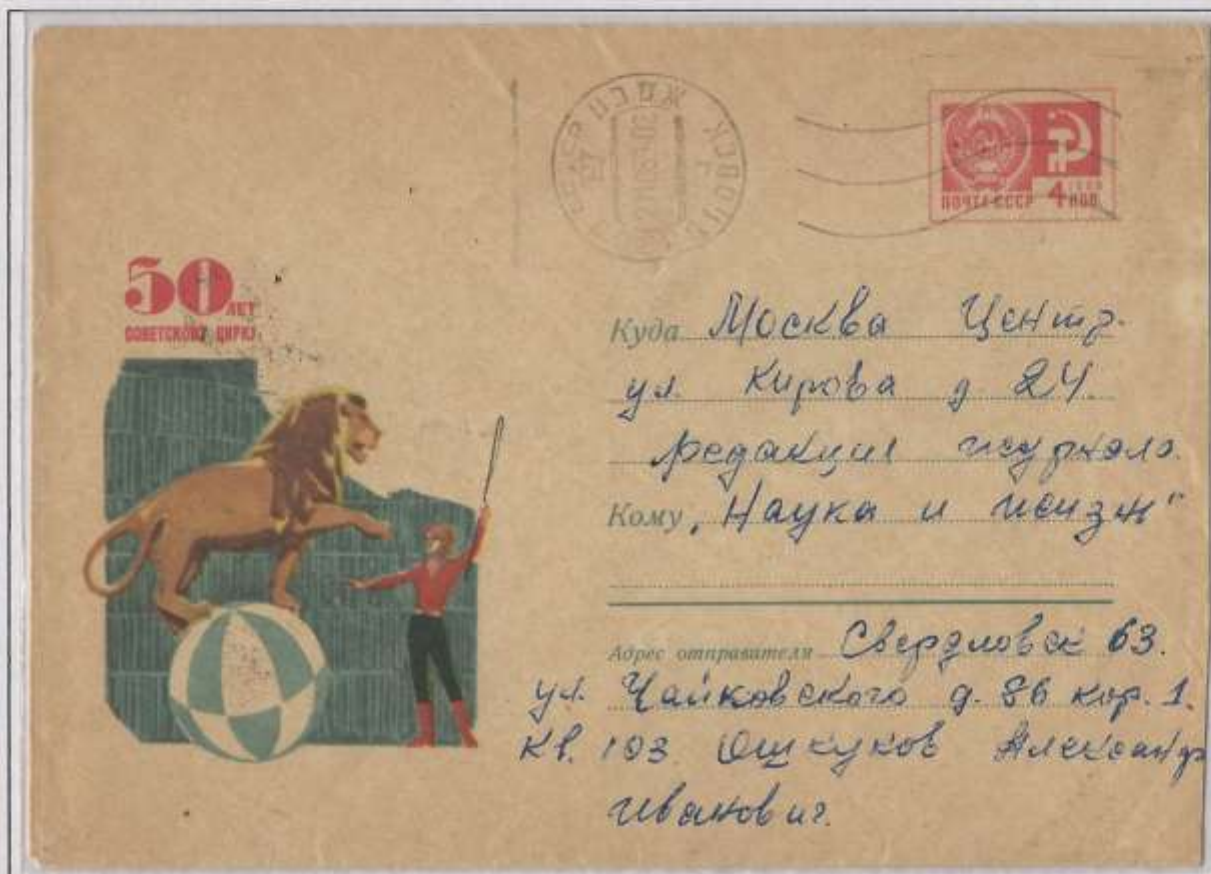 50 ЛЕТ
СОВЕТСКОМУ ЦИРКУ
ПОЧТА СССР 4 КОП
Куда Москва Центр.
ул. Кирова д. 24
редакция журнала
Кому „Наука и жизнь"
Адрес отправителя Свердловск 63.
ул. Чайковского д. 86 кор. 1.
кв. 103 Ошкуков Александр
Иванович.